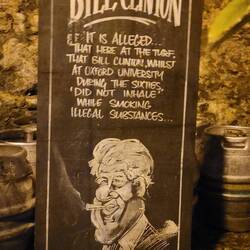 BILL CLINTON
IT IS ALLEGED...
THAT HERE AT THE TURF,
THAT BILL CLINTON, WHILST
AT OXFORD UNIVERSITY
DURING THE SIXTIES,
'DID NOT INHALE'
WHILE SMOKING
ILLEGAL SUBSTANCES...